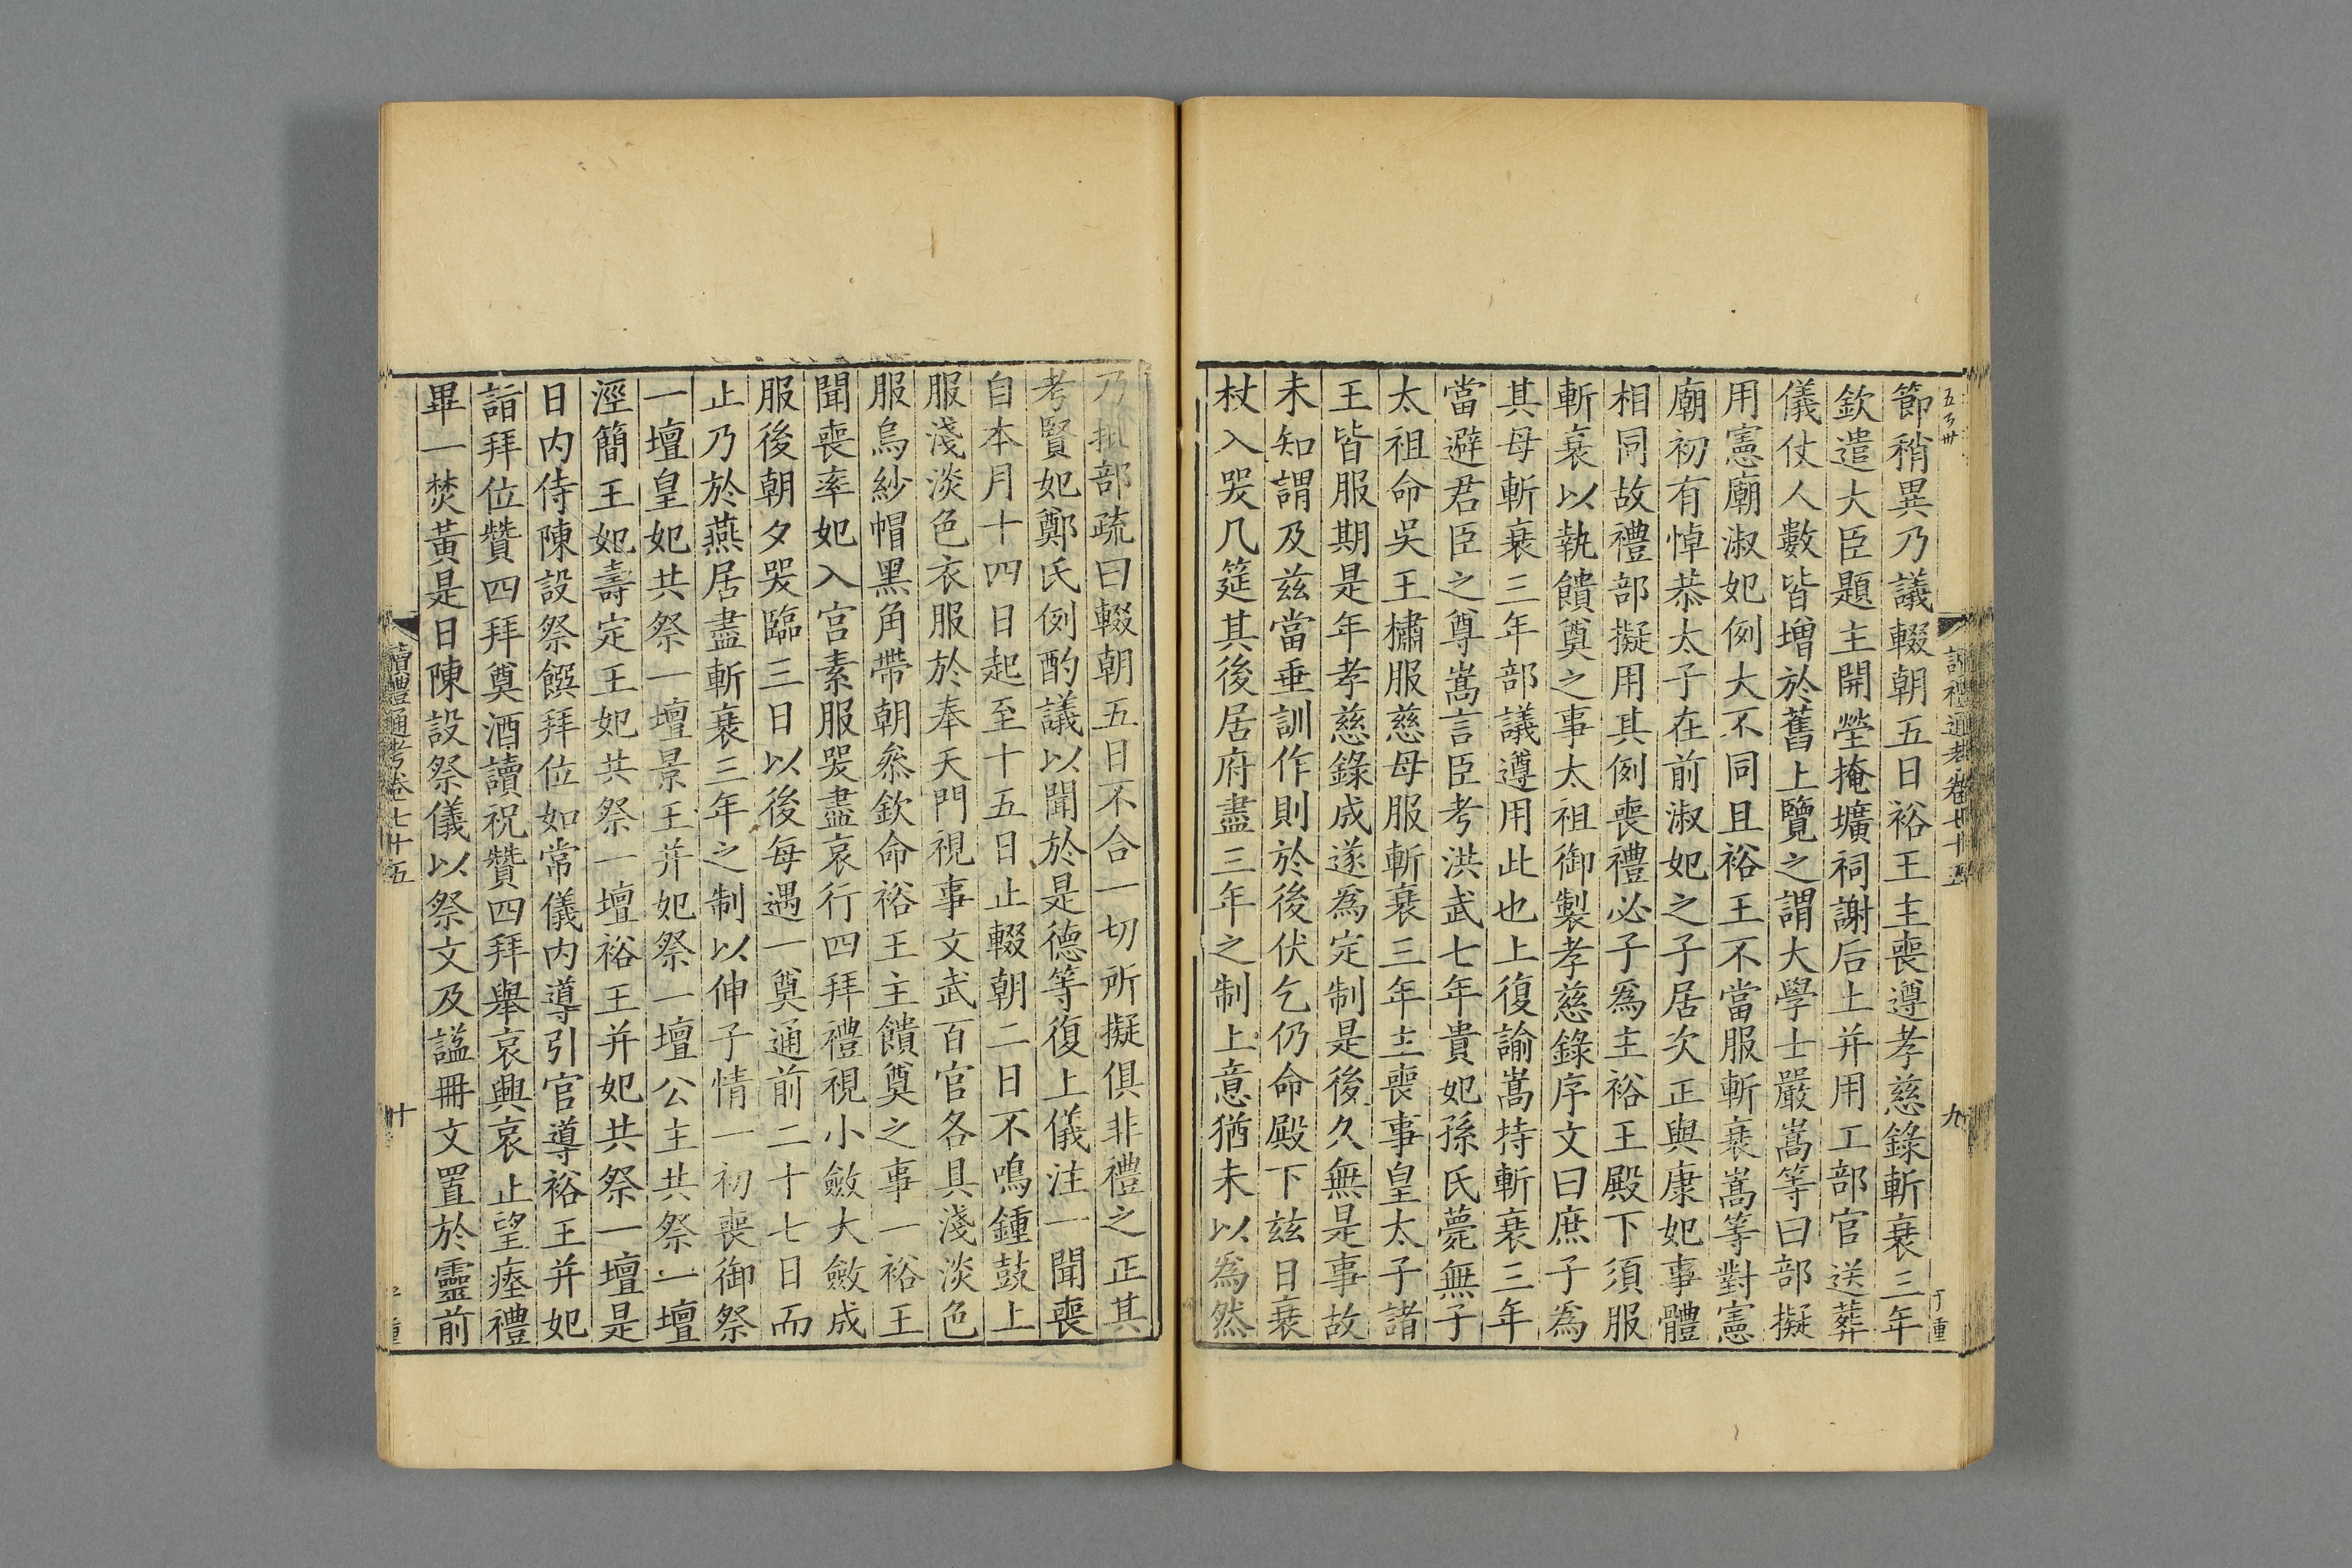 節稍異乃議輟朝五日裕王主喪遵孝慈錄斬衰三年
欽遣大臣題主開塋掩壙祠謝后土并用工部官送葬
儀仗人數皆增於舊上覽之謂大學士嚴嵩等曰部擬
用憲廟淑妃例大不同且裕王不當服斬衰嵩等對憲
廟初有悼恭太子在前淑妃之子居次正與康妃事體
相同故禮部擬用其例喪禮必子爲主裕王殿下須服
斬衰以執饋奠之事太祖御製孝慈錄序文曰庶子爲
其母斬衰三年部議遵用此也上復諭嵩持斬衰三年
當避君臣之尊嵩言臣考洪武七年貴妃孫氏薨無子
太祖命吳王橚服慈母服斬衰三年主喪事皇太子諸
王皆服期是年孝慈錄成遂爲定制是後久無是事故
未知謂及兹當垂訓作則於後伏乞仍命殿下兹日衰
杖入哭几筵其後居府盡三年之制上意猶未以爲然
讀禮通考卷七十五
九
乃批部疏曰輟朝五日不合一切所擬俱非禮之正其
考賢妃鄭氏例酌議以聞於是德等復上儀注一聞喪
自本月十四日起至十五日止輟朝二日不鳴鍾鼓上
服淺淡色衣服於奉天門視事文武百官各具淺淡色
服烏紗帽黑角帶朝叅欽命裕王主饋奠之事一裕王
聞喪率妃入宫素服哭盡哀行四拜禮視小斂大斂成
服後朝夕哭臨三日以後每遇一奠通前二十七日而
止乃於燕居盡斬衰三年之制以伸子情一初喪御祭
一壇皇妃共祭一壇景王并妃祭一壇公主共祭一壇
涇簡王妃壽定王妃共祭一壇裕王并妃共祭一壇是
日内侍陳設祭饌拜位如常儀内導引官導裕王并妃
詣拜位贊四拜奠酒讀祝贊四拜舉哀興哀止望瘞禮
畢一焚黃是日陳設祭儀以祭文及謚冊文置於靈前
讀禮通考卷七十五
十